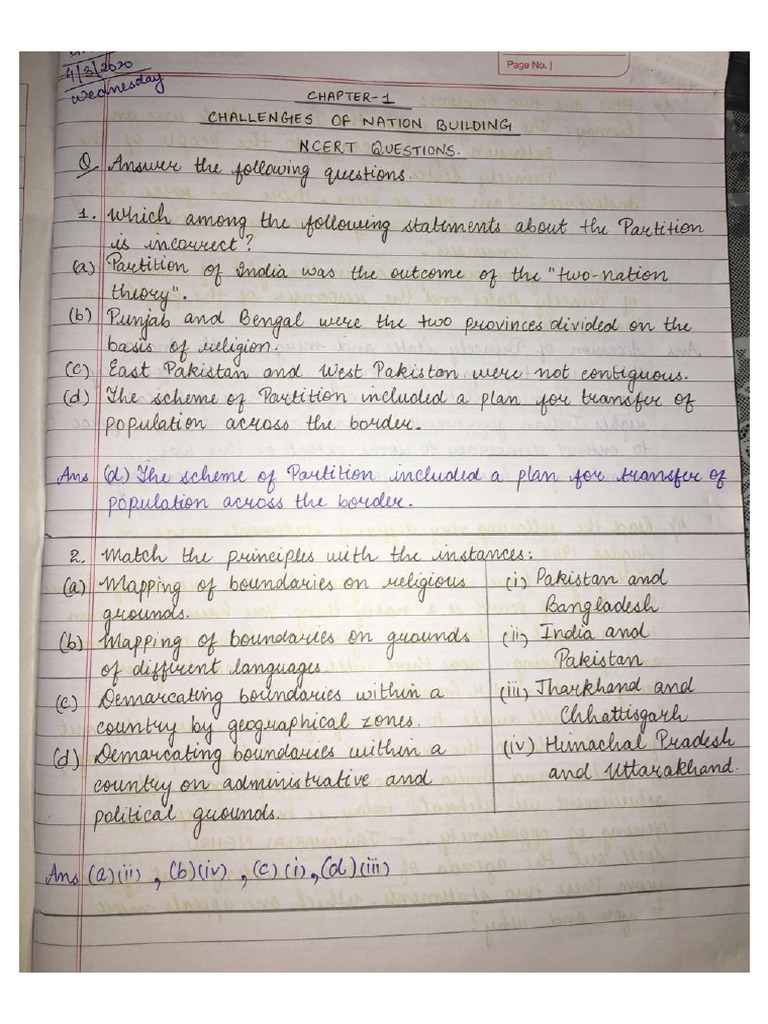 4/3/2020
Wednesday
Page No.
CHAPTER-1
CHALLENGES OF NATION BUILDING
NCERT QUESTIONS.
Q Answer the following questions.
1. Which among the following statements about the Partition
is incorrect?
(a) Partition of India was the outcome of the "two-nation
theory".
(b) Punjab and Bengal were the two provinces divided on the
basis of religion.
(c) East Pakistan and West Pakistan were not contiguous.
(d) The scheme of Partition included a plan for transfer of
population across the border.
Ans (d) The scheme of Partition included a plan for transfer of
population across the border.
2. Match the principles with the instances:
(a) Mapping of boundaries on religious
grounds.
(b) Mapping of boundaries on grounds
of different languages.
(c) Demarcating boundaries within a
country by geographical zones.
(d) Demarcating boundaries within a
country on administrative and
political grounds.
(i) Pakistan and
Bangladesh
(ii) India and
Pakistan
(iii) Jharkhand and
Chhattisgarh
(iv) Himachal Pradesh
and Uttarakhand.
Ans (a)(ii), (b)(iv), (c)(i), (d)(iii)